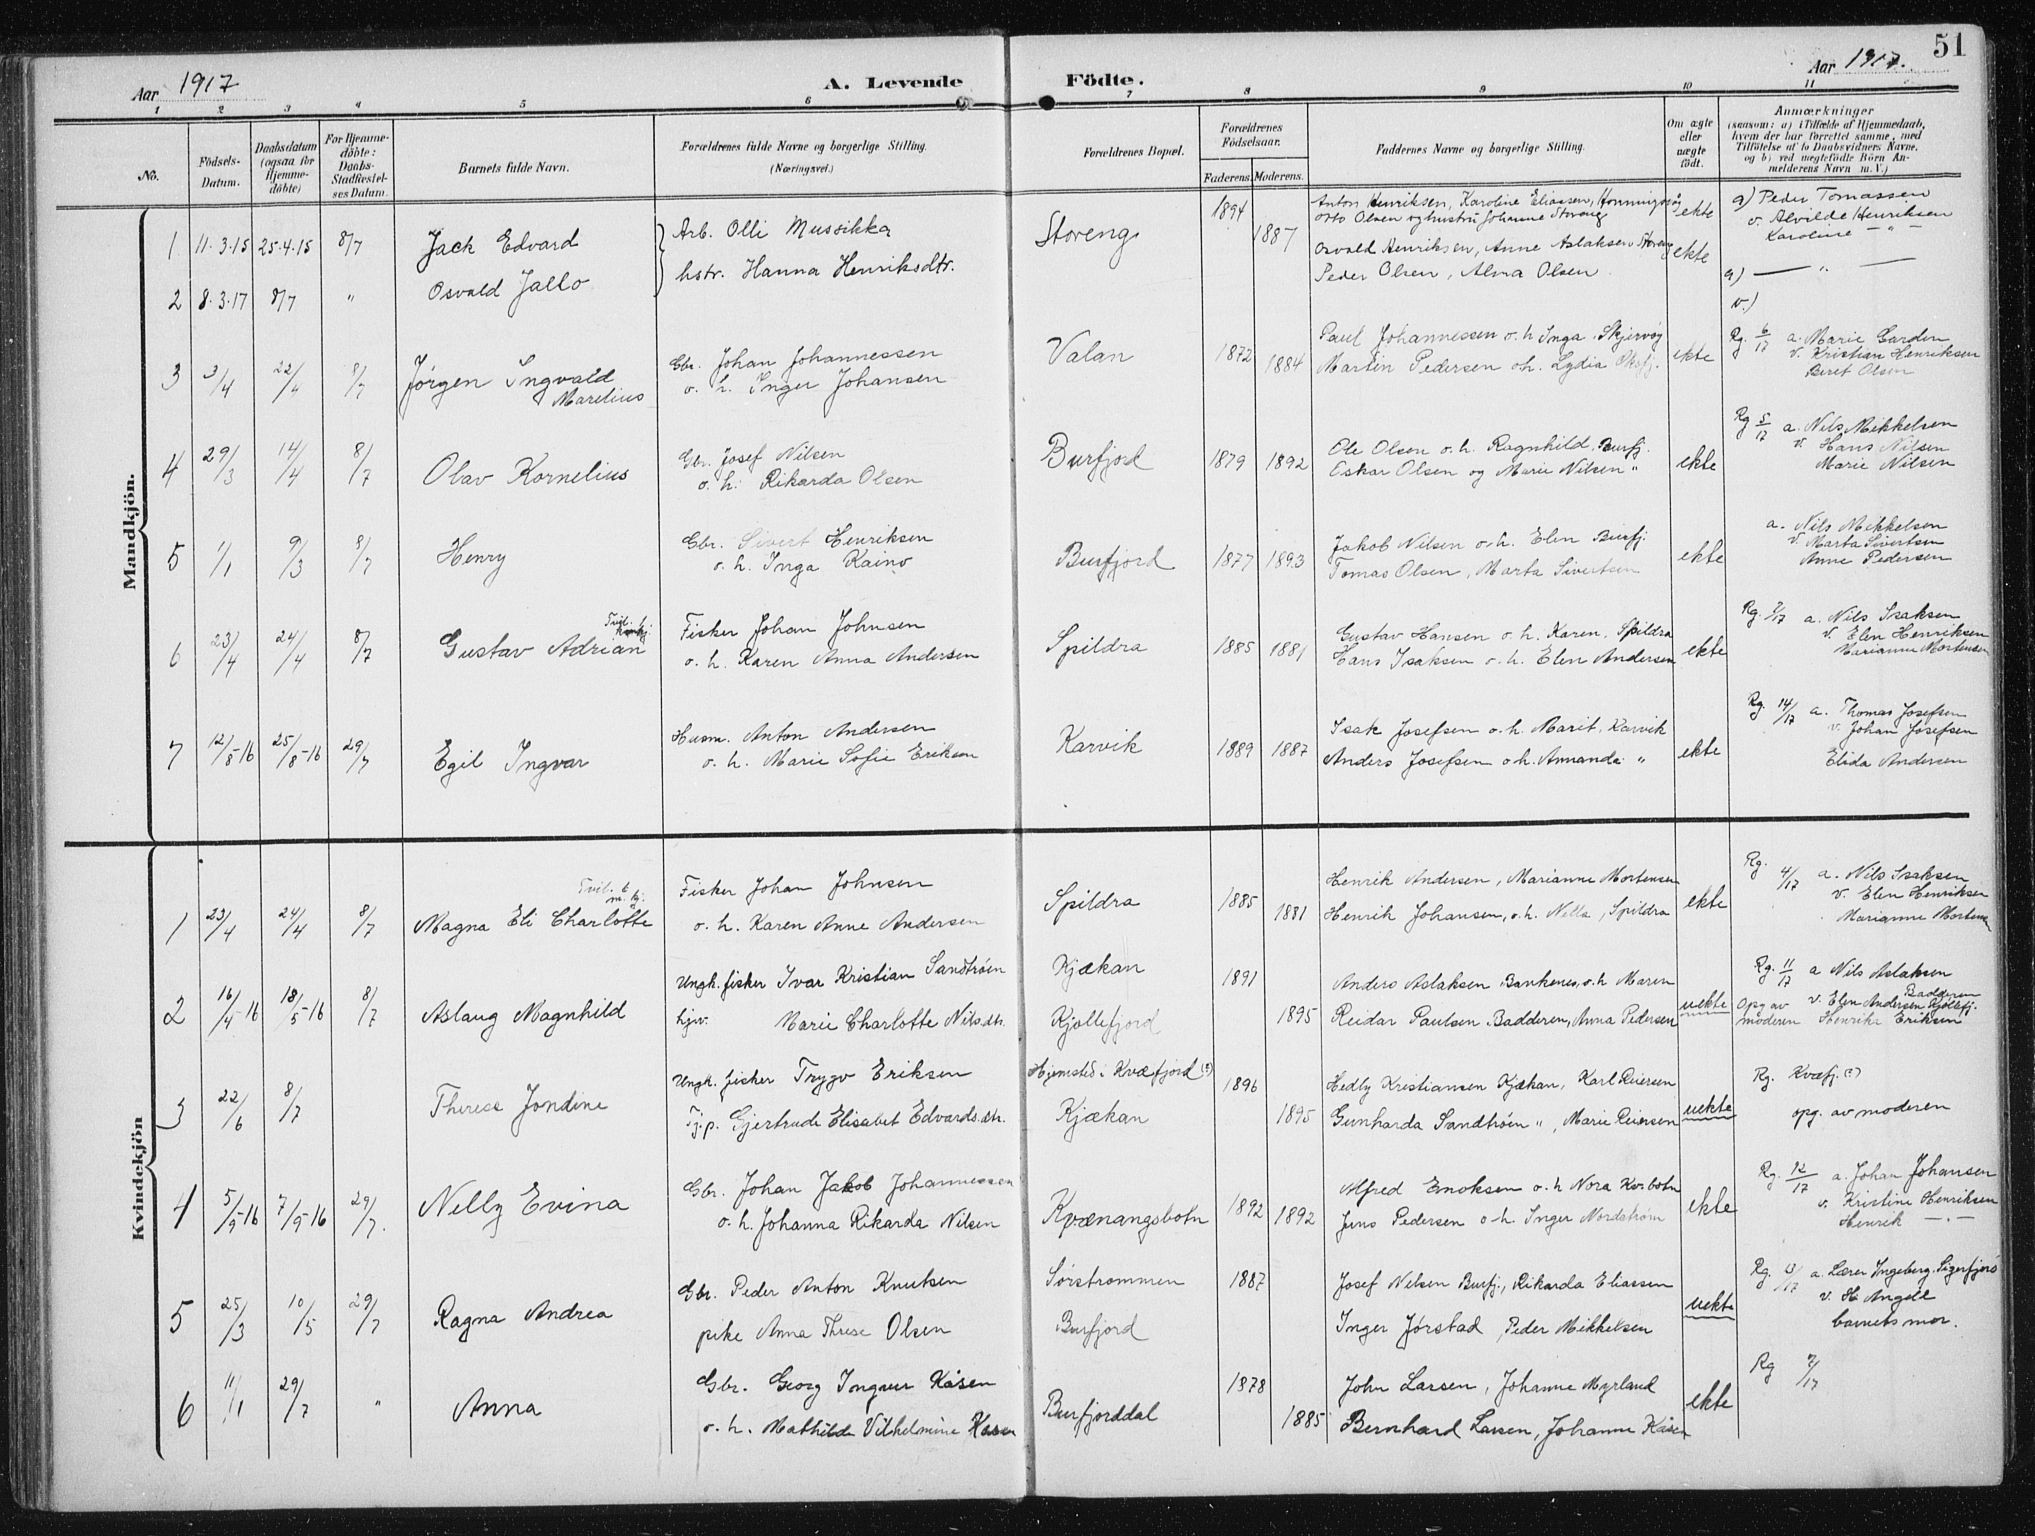 51
Aar 1917
A. Levende
Födte.
Aar 1917.
1 2 3 4 5 6 7 8 9 10 11
No.
Födsels-
Datum.
Daabsdatum
(ogsaa for
Hjemme-
döbte)
For Hjemme-
döbte:
Daabs-
Stadfæstel-
ses Datum.
Barnets fulde Navn.
Forældrenes fulde Navne og borgerlige Stilling.
(Næringsvei.)
Forældrenes Bopæl.
Forældrenes
Födselsaar.
Faderens. Moderens.
Faddernes Navne og borgerlige Stilling.
Om ægte
eller
uægte
födt.
Anmærkninger
(saasom: a) i Tilfælde af Hjemmedaab,
hvem der har forrettet samme, med
Tilföielse af to Daabsvidners Navne,
og b) ved uægtefödte Börn An-
melderens Navn m. V.)
Mandkjön.
1 11.3.15 25.4.15 8/7 Jack Edvard
Arb. Olli Mussikka
hstr. Hanna Henriksdtr.
Storeng
1894 1887
Anton Henriksen, Karoline Eliassen, Honningsvåg
Otto Olsen og hustru Johanne Storeng
ekte
a) Peder Tomassen
v. Alvilde Henriksen
Karoline — " —
2 8.3.17 8/7 " Osvald Jallo
Osvald Henriksen, Anne Aslaksen Storeng
Peder Olsen, Alma Olsen
ekte
a) — " —
v.)
3 3/4 22/4 8/7 Jörgen Ingvald
Marelius
Gbr. Johan Johannessen
o. h. Inger Johansen
Valan
1872 1884
Paul Johannessen o. h. Inga Skjervøy
Martin Pedersen o.h. Lydia Oksfj.
ekte
Rg. 6/17 a. Marie Garden
v. Kristian Henriksen
Beret Olsen
4 29/3 14/4 8/7 Olav Kornelius
Gbr. Josef Nilsen
o. h. Rikarda Olsen
Burfjord
1879 1892
Ole Olsen o. h. Ragnhild, Burfj.
Oskar Olsen og Marie Nilsen "
ekte
Rg 5/17 a. Nils Mikkelsen
v. Hans Nilsen
Marie Nilsen
5 1/1 9/3 8/7 Henry
Gbr. Sivert Henriksen
o. h. Inga Kaino
Burfjord
1877 1893
Jakob Nilsen o.h. Elen Burfj.
Tomas Olsen, Marta Sivertsen
ekte
a. Nils Mikkelsen
v. Marta Sivertsen
Anne Pedersen
6 23/4 24/4 8/7 Gustav Adrian
Tvil.
Fisker Johan Johnsen
o. h. Karen Anna Andersen
Spildra
1885 1881
Gustav Hansen o. h. Karen, Spildra
Hans Isaksen o. h. Elen Andersen
ekte
Rg. a. Nils Isaksen
v. Elen Henriksen
Marianne Mortensen
7 12/8-16 25/8-16 29/7 Egil Ingvar
Husm. Anton Andersen
o. h. Marie Sofie Eriksen
Karvik
1889 1887
Isak Josefsen o. h. Marit, Karvik
Anders Josefsen o h. Annanda "
ekte
Rg. 14/17 a. Thomas Josefsen
v. Johan Josefsen
Elida Andersen
Kvindekjön
1 23/4 24/4 8/7 Magna Eli Charlotte
Tvil. 6
m. kj.
Fisker Johan Johnsen
o. h. Karen Anne Andersen
Spildra
1885 1881
Henrik Andersen, Marianne Mortensen
Henrik Johansen, o. h. Nella, Spildra
ekte
Rg. 4/17 a. Nils Isaksen
v. Elen Henriksen
Marianne Mortens
2 16/4-16 18/5-16 8/7 Aslaug Magnhild
Ungk. fisker Ivar Kristian Sandtrøen
hjv. Marie Charlotte Nilsdtr.
Kjækan
Kjøllefjord
1891 1895
Anders Aslaksen Bankenes, o. h Maren
Reidar Paulsen Badderen, Anna Pedersen
uekte
Rg. 11/17 a Nils Aslaksen
Badderen
v. Elen Andersen Kjøllefj.
Henrika Eriksen
Opg av
moderen
3 22/6 8/7 Therese Jondine
Ungk. fisker Trygv Eriksen
Tj. p. Gjertrude Elisabet Edvardsdtr.
Hjemsted i Kvæfjord (?)
Kjækan
1896 1895
Hedly Kristiansen Kjækan, Karl Reiersen
Gunharda Sandtrøen ", Marie Reiersen
uekte
Rg. Kvæfj. (?)
opg. av moderen
4 5/9-16 7/9-16 29/7. Nelly Evina
Gbr. Johan Jakob Johannessen
o. h. Johanna Rikarda Nilsen
Kvænangsbotn
1892 1892
Alfred Enoksen o. h Nora Kv.botn
Jens Pedersen o h. Inger Nordstrøm
ekte
Rg. 12/17 a. Johan Johansen
v. Kristine Henriksen
Henrik — " —
5 25/3 10/5 29/7 Ragna Andrea
Gbr. Peder Anton Knutsen
pike Anna Threse Olsen
Sørstrømmen
Burfjord
1887
Josef Nilsen Burfj., Rikarda Eliassen
Inger Jørstad, Peder Mikkelsen
uekte
Rg. a. Lærer Ingeberg, Sigerfjord
v. H. Angell
barnets mor.
6 11/1 29/7 " Anna
Gbr. Georg Ingvar Kåsen
o. h. Mathilde Vilhelmine Kåsen
Burfjorddal
1878 1885
John Larsen, Johanne Myrland
Bernhard Larsen, Johanne Kåsen
ekte
Rg 7/17